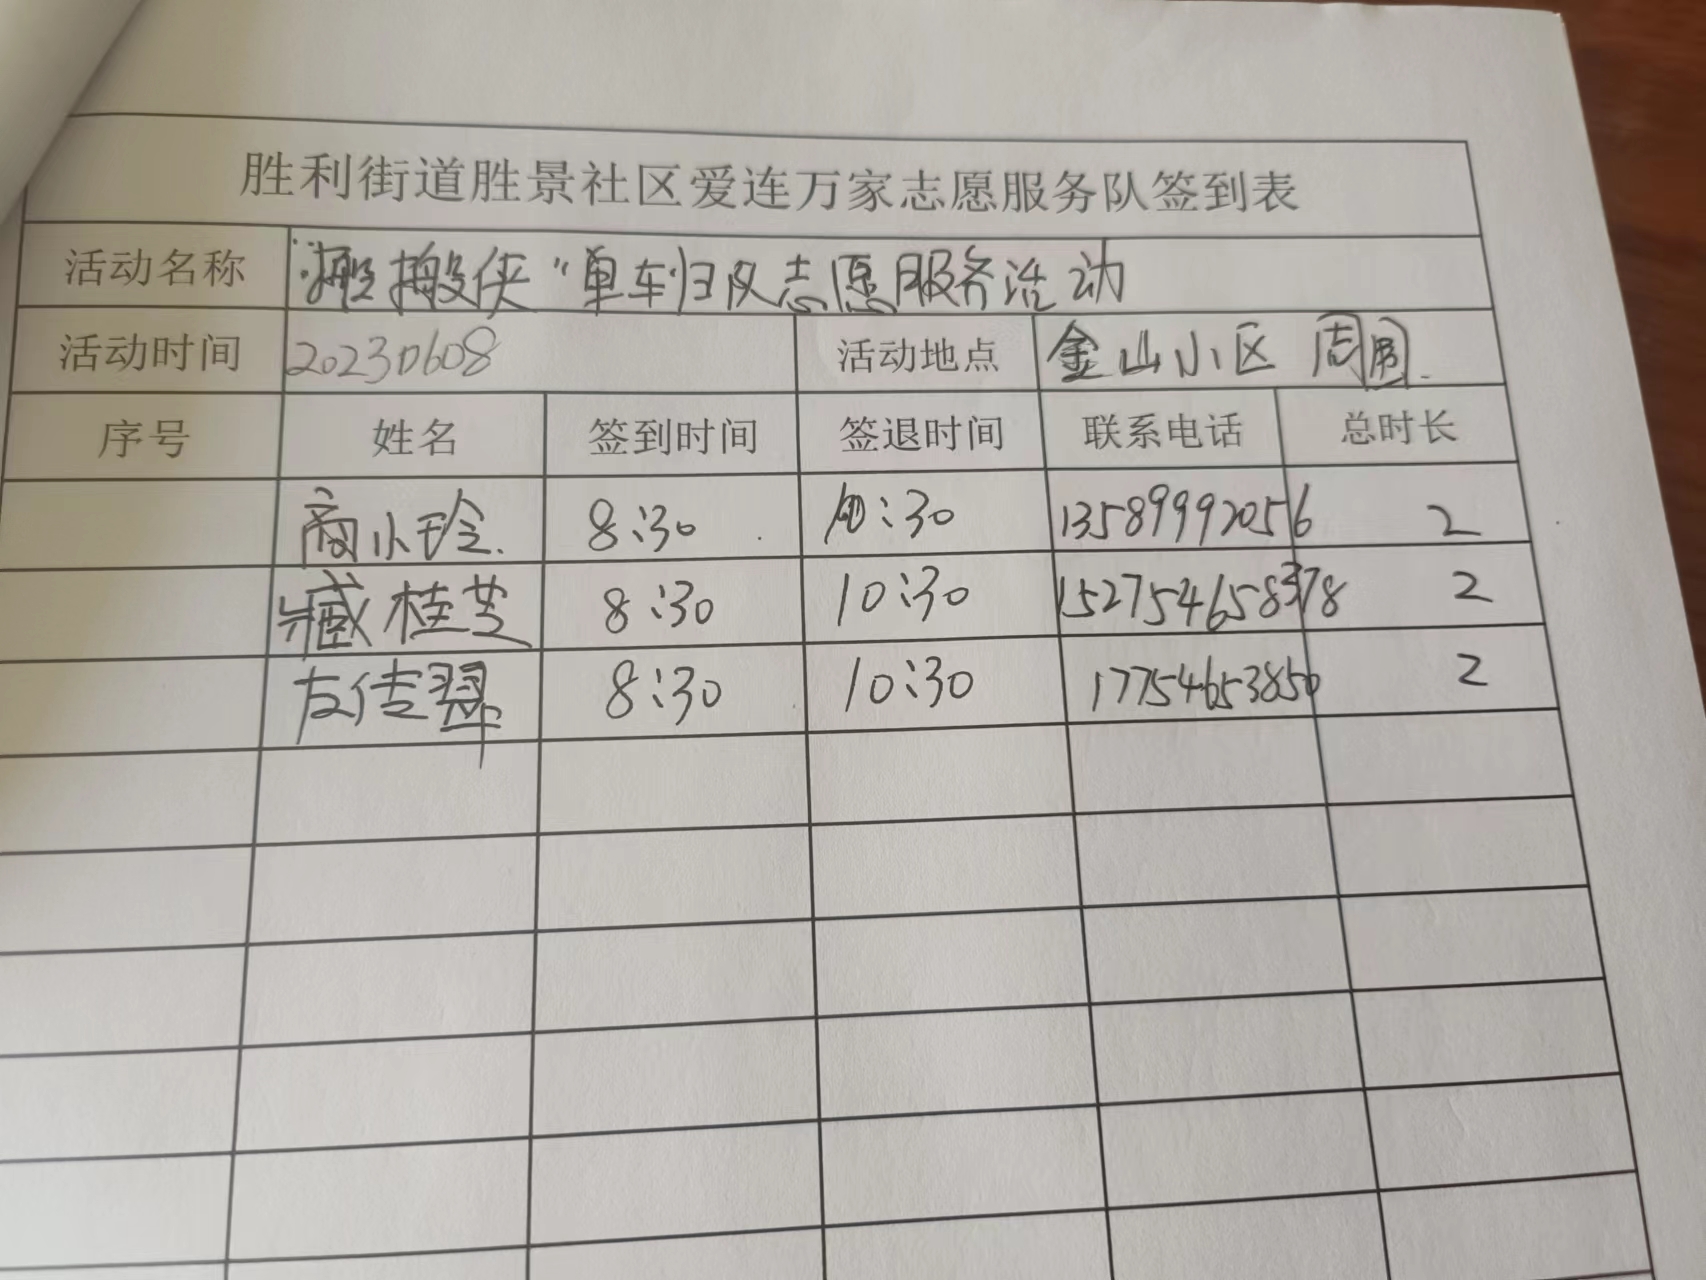 胜利街道胜景社区爱连万家志愿服务队签到表
活动名称 “搬搬侠“单车归队志愿服务活动
活动时间 20230608 活动地点 金山小区 周围.
序号 姓名 签到时间 签退时间 联系电话 总时长
商小玲. 8:30 10:30 13589992056 2
臧桂芝 8:30 10:30 2
8:30 10:30 17754653850 2